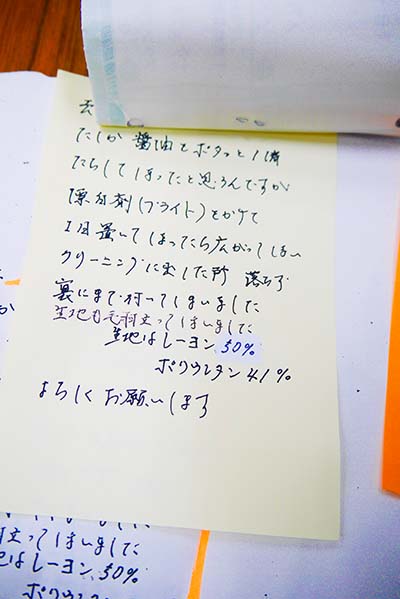 たしか 醤油をポタッと1滴
たらしてしまったと思うんですが
漂白剤(ブライト)をかけて
1日置いてしまったら広がってしまい
クリーニングに出した所 落ちず
裏にまで付いてしまいました
生地も毛羽立ってしまいました
生地はレーヨン 50%
ポリウレタン 41%
よろしくお願いします
立ってしまいました
地はレーヨン、50%
ポリウレタン